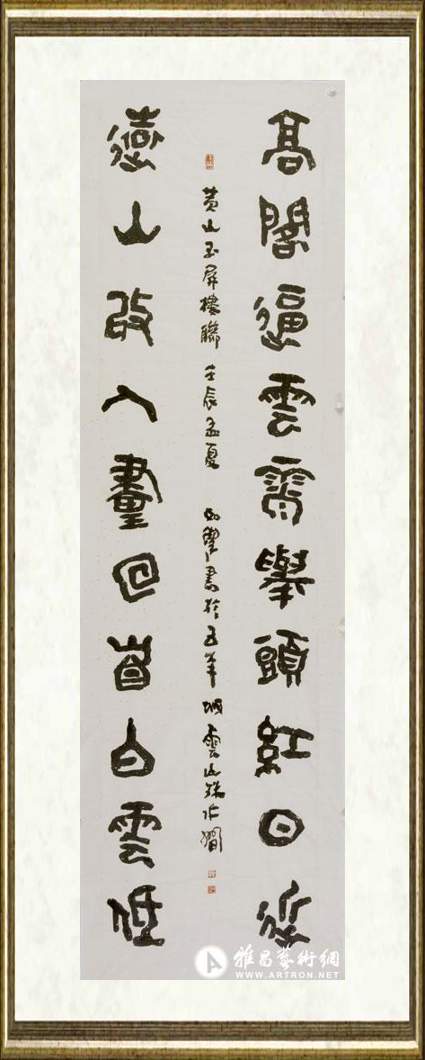 高閣逼雲霄舉頭紅日近
黃山玉屏樓聯 壬辰孟夏 書於五羊城雲山珠水間
遠山收入畫回首白雲低
雅昌藝術網
WWW.ARTRON.NET